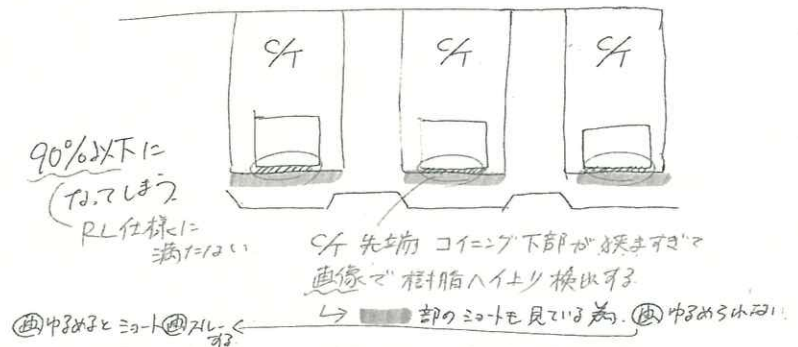 C/T C/T C/T
90%以下に
なってしまう。
RL仕様に
満たない
C/T 先端 コイニング下部が狭すぎて
画像で樹脂ハイより検出する
↳ 部のショートも見ている為、画ゆるめられない
画ゆるめるとショート画スルーする